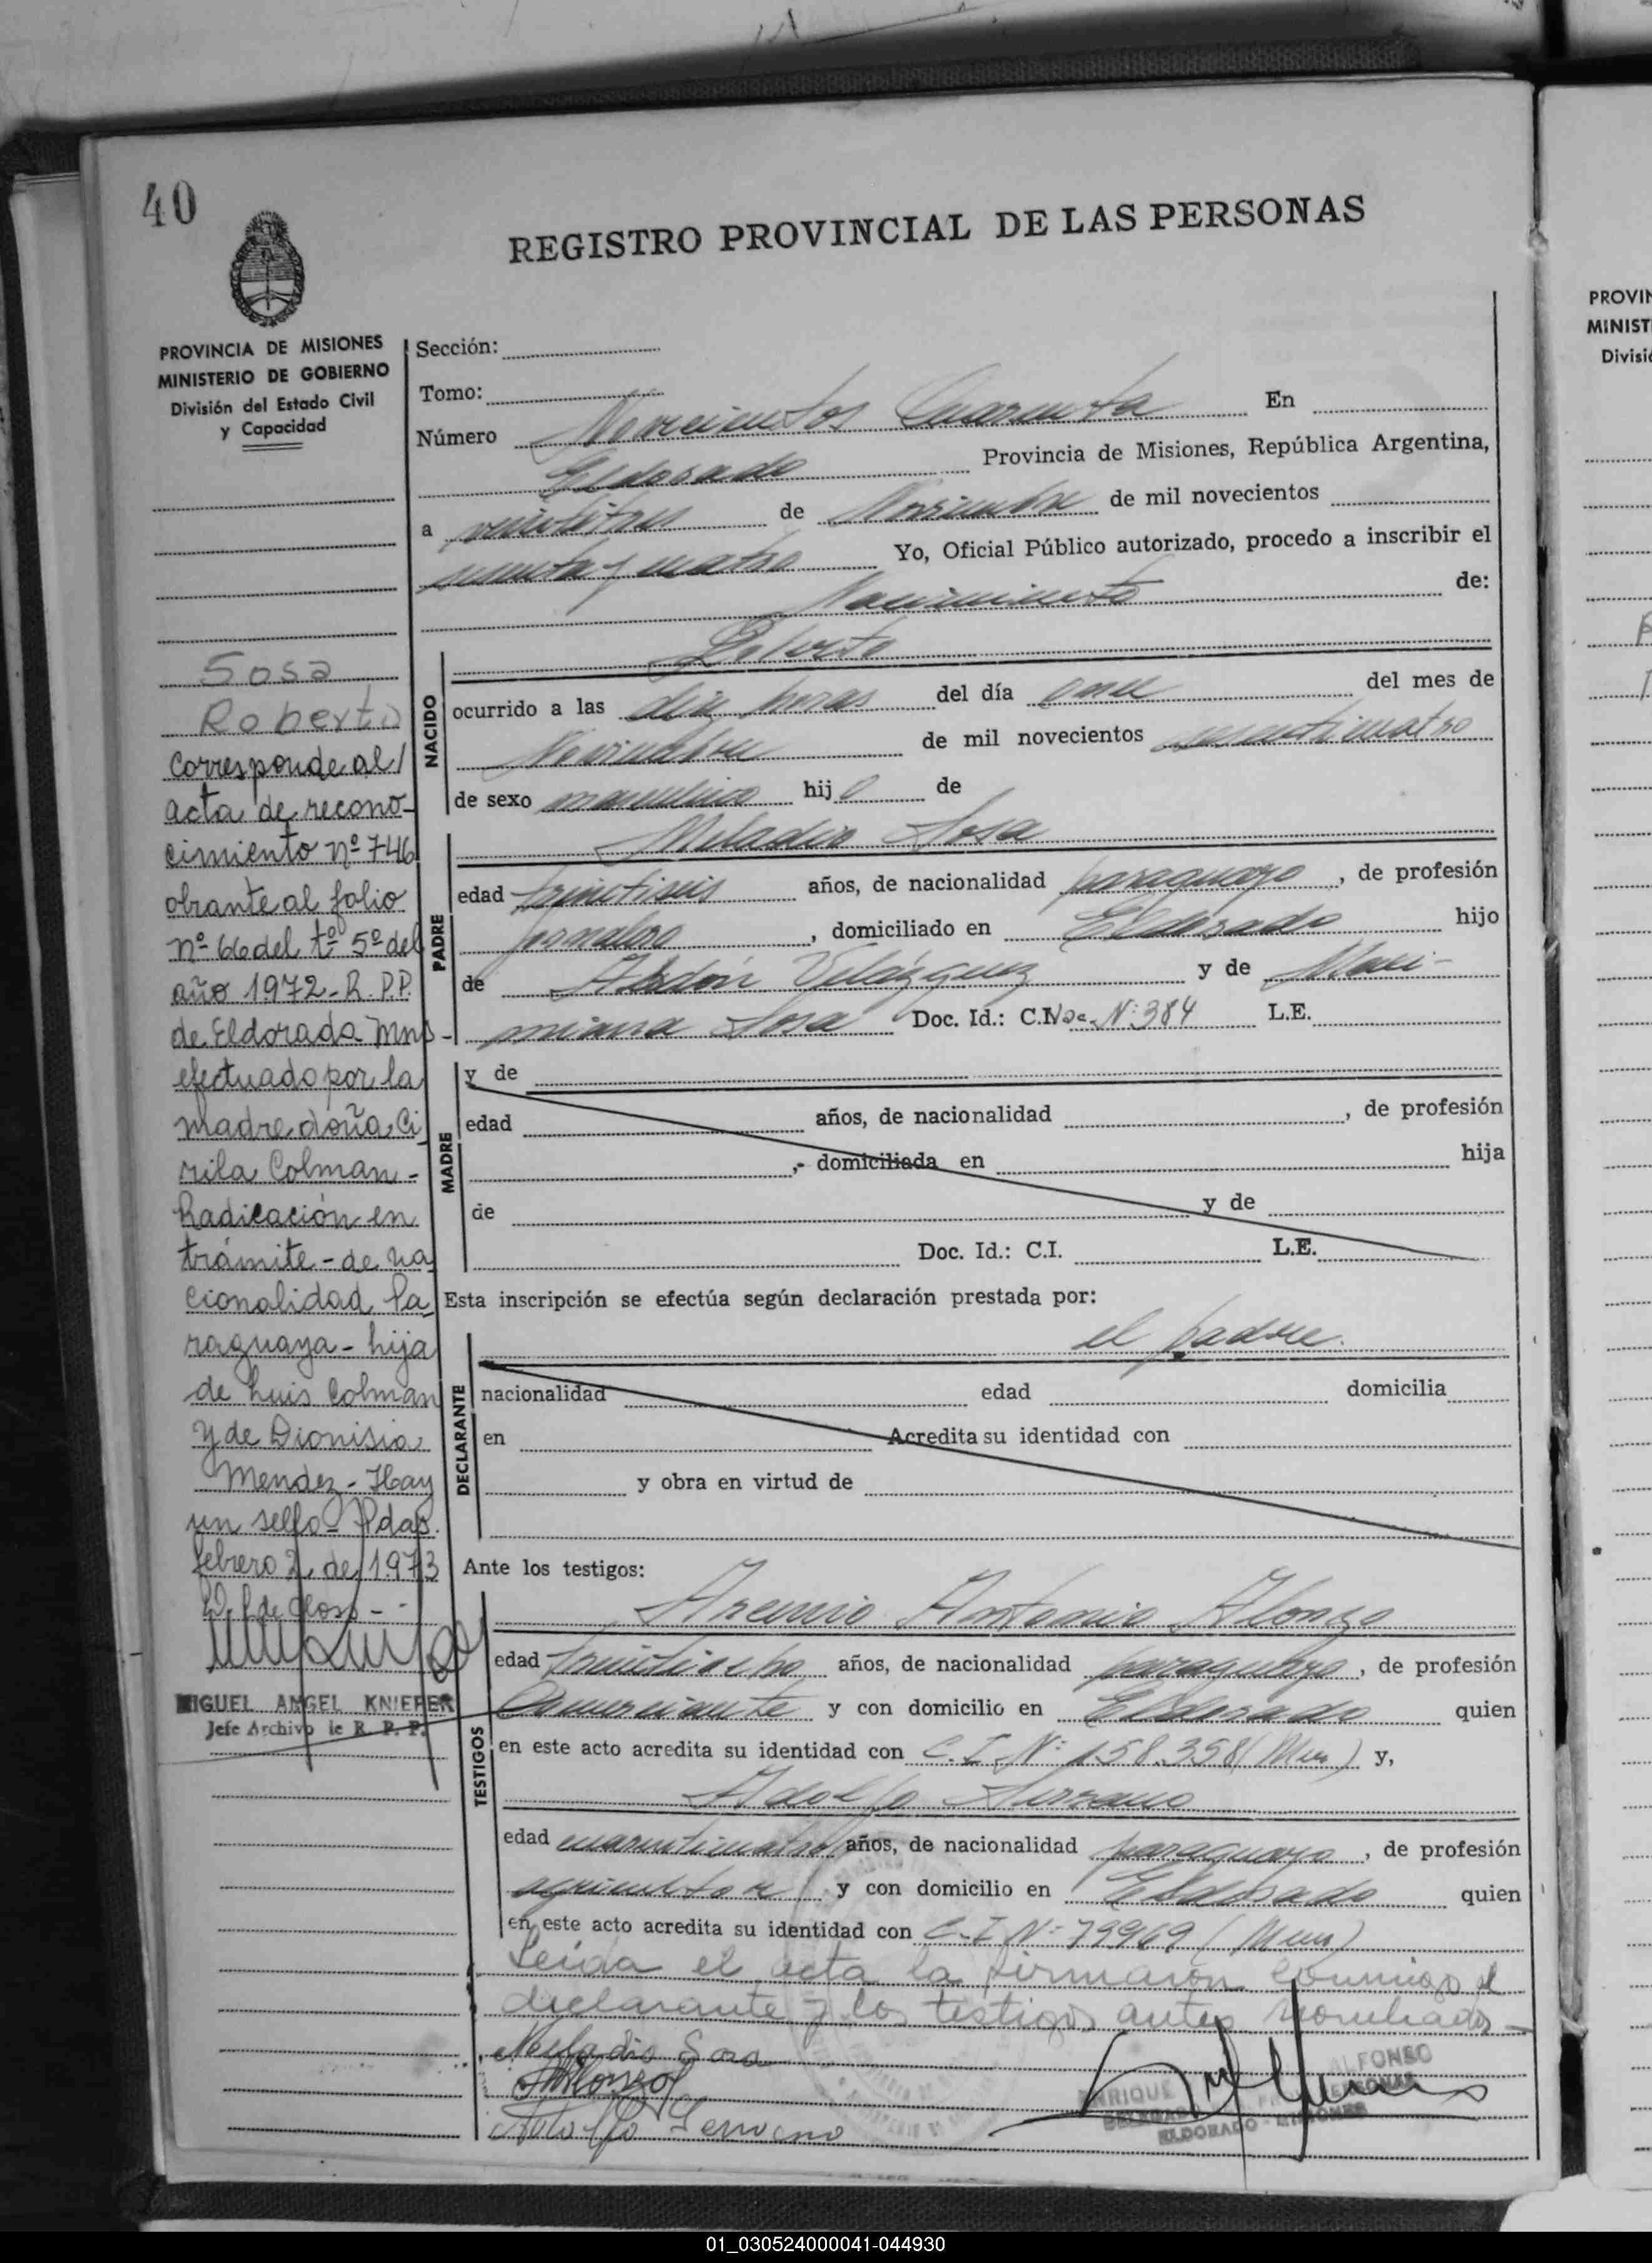 40
REGISTRO PROVINCIAL DE LAS PERSONAS
PROVINCIA DE MISIONES
MINISTERIO DE GOBIERNO
División del Estado Civil
y Capacidad
Sosa
Roberto
Corresponde al
acta de recono-
cimiento nº 746
obrante al folio
nº 66 del tº 5º del
año 1972 - R. P.P.
de Eldorado Mns -
efectuado por la
madre doña Ci
rila Colman -
Radicación en
trámite - de na
cionalidad Pa
raguaya - hija
de Luis Colman
y de Dionisia
Mendez - Hay
un sello - Pdas.
febrero 2 de 1973
MIGUEL ANGEL KNIEPER
Jefe Archivo de R. P. P.
Sección:
Tomo:
Número Novecientos Cuarenta En
Eldorado Provincia de Misiones, República Argentina,
a veintitres de Noviembre de mil novecientos
sesenta y cuatro Yo, Oficial Público autorizado, procedo a inscribir el
Nacimiento de:
Roberto
NACIDO
ocurrido a las diez horas del día once del mes de
Noviembre de mil novecientos sesenticuatro
de sexo masculino hijo de
Miladio Sosa
PADRE
edad treintiseis años, de nacionalidad paraguayo, de profesión
jornalero, domiciliado en Eldorado hijo
de Abdón Velázquez y de Maxi-
miana Sosa Doc. Id.: C. Nº 384 L.E.
MADRE
y de
edad años, de nacionalidad , de profesión
, domiciliada en hija
de y de
Doc. Id.: C.I. L.E.
Esta inscripción se efectúa según declaración prestada por:
el padre.
DECLARANTE
nacionalidad edad domicilia
en Acredita su identidad con
y obra en virtud de
Ante los testigos:
TESTIGOS
Arsenio Antonio Alonzo
edad treintiocho años, de nacionalidad paraguayo, de profesión
Comerciante y con domicilio en Eldorado quien
en este acto acredita su identidad con C.I. Nº 158.358 (Mnes) y,
Adolfo Serrano
edad cuarenticuatro años, de nacionalidad paraguayo, de profesión
agricultor y con domicilio en Eldorado quien
en este acto acredita su identidad con C.I Nº 79969 (Mnes)
Leída el acta la firmaron conmigo el
declarante y los testigos antes nombrados -
Miladio Sosa
AAlonzo
Adolfo Serrano
ENRIQUE ALFONSO
ELDORADO - MISIONES
PROVIN
MINIST
Divisió
01_030524000041-044930